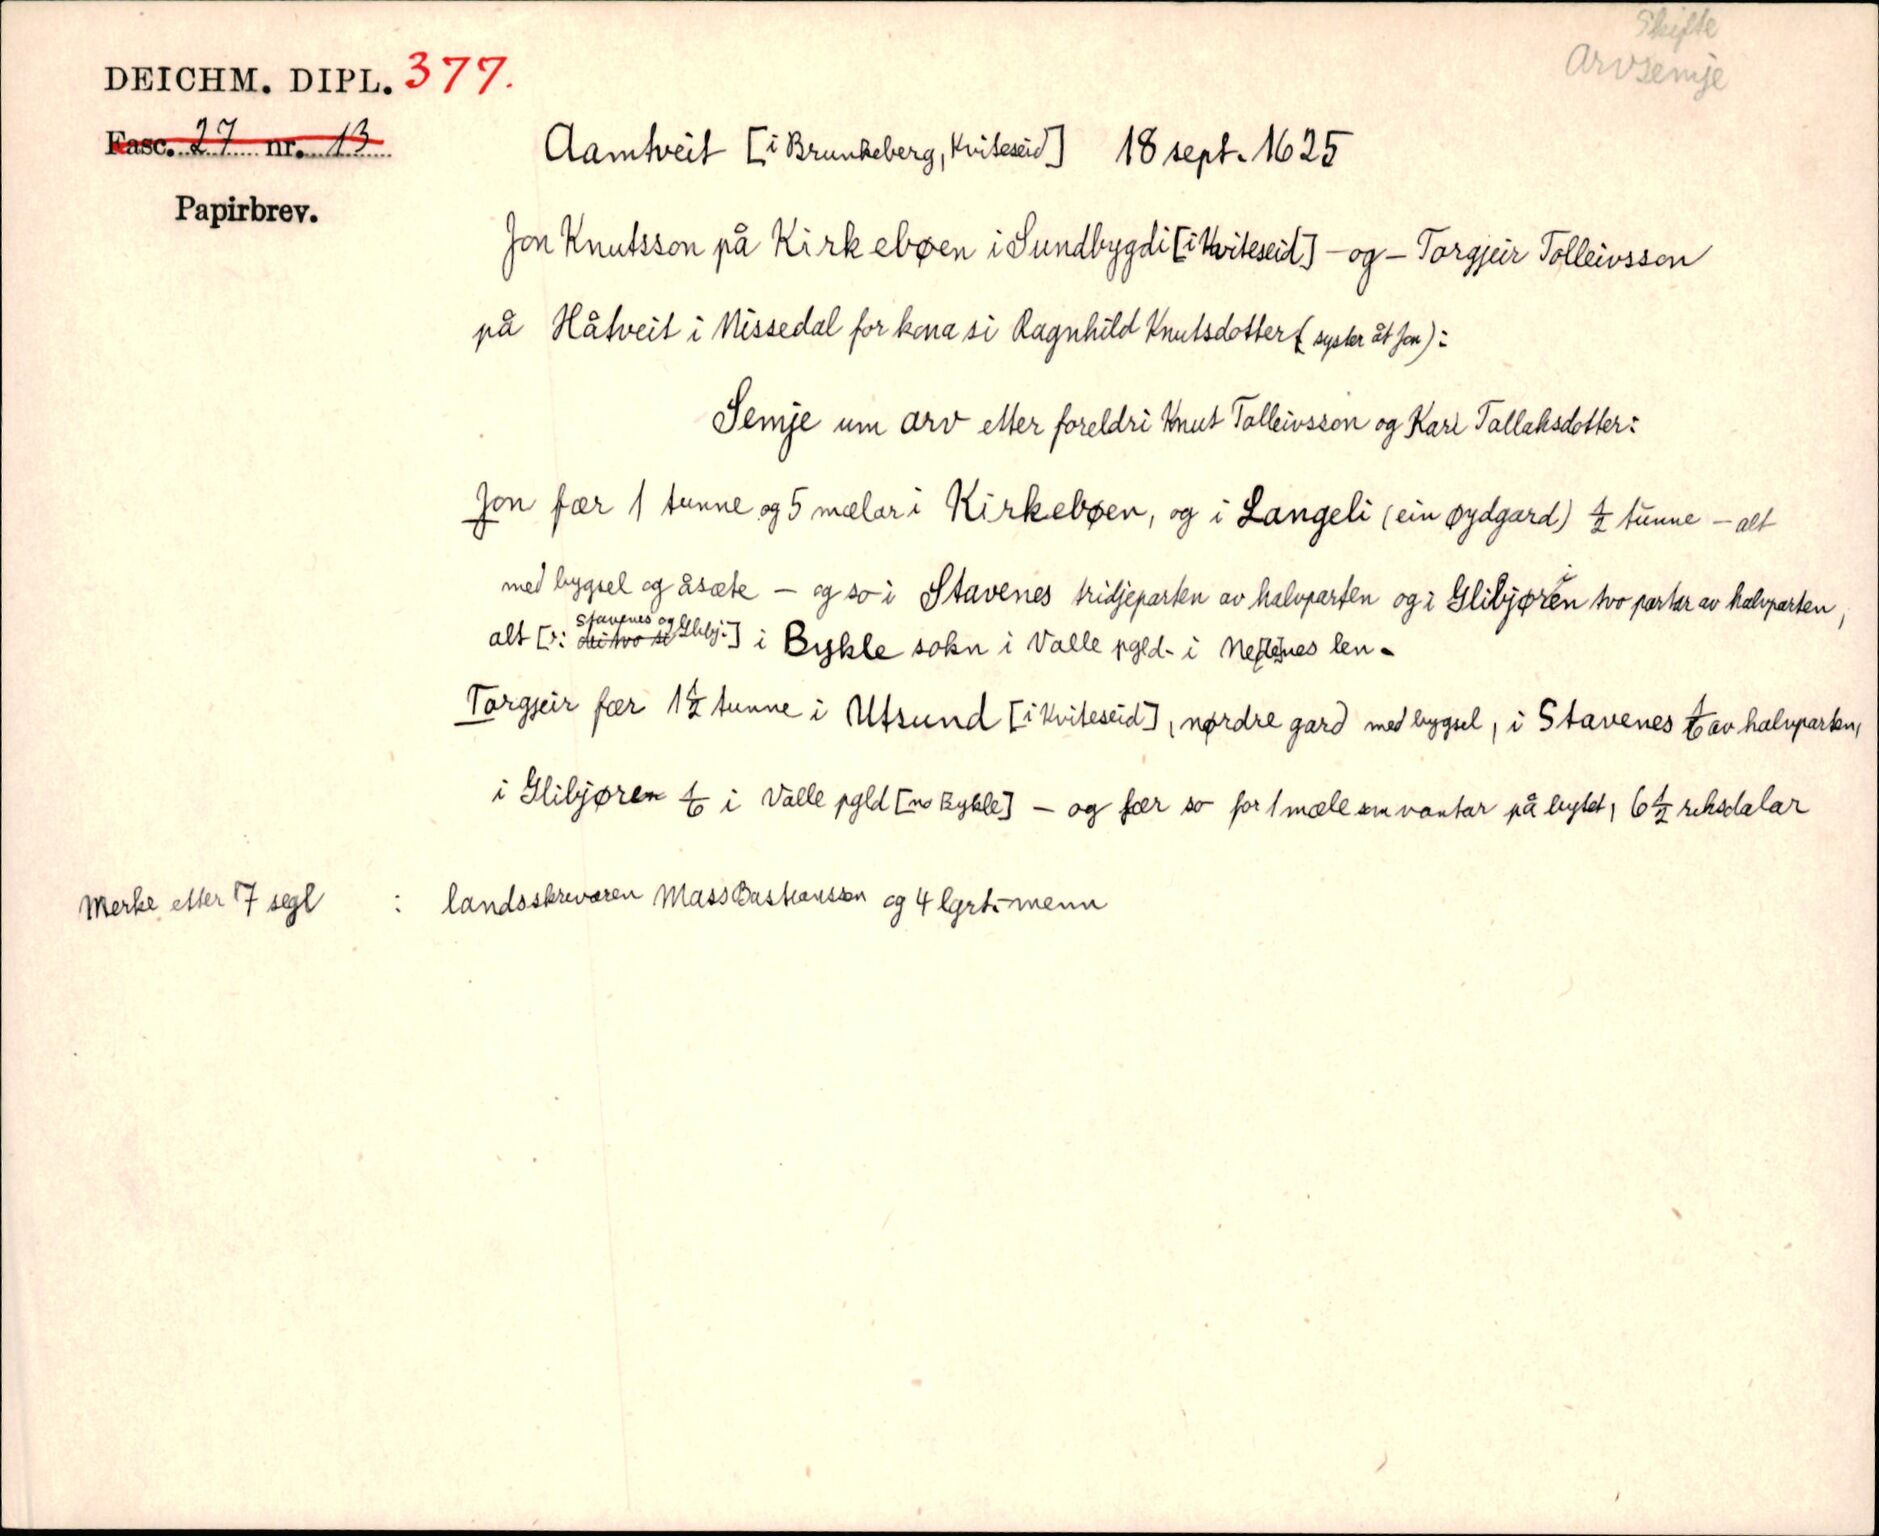 Skifte
Arvsemje
DEICHM. DIPL. 377.
Fasc. 27 nr. 13
Papirbrev.
Aamtveit [i Brunkeberg, Kviteseid] 18 sept. 1625
Jon Knutsson på Kirkebøen i Sundbygdi [i Kviteseid] - og - Torgjeir Tolleivsson
på Håtveit i Nissedal for kona si Ragnhild Knutsdotter (syster åt Jon):
Semje um arv etter foreldri Knut Tolleivsson og Kari Tallaksdotter:
Jon fær 1 tunne og 5 mælar i Kirkebøen, og i Langeli (ein øydgard) 1/2 tunne - alt
med bygsel og åsæte - og so i Stavenes tridjeparten av halvparten og i Glibjøren tvo partar av halvparten,
alt [ɔ: dei tvo si Stavenes og Glibj.] i Bykle sokn i Valle pgld. i Ne[de]nes len.
Torgjeir fær 1 1/2 tunne i Utsund [i Kviteseid], nørdre gard med bygsel, i Stavenes 1/6 av halvparten,
i Glibjøren 1/6 i Valle pgld [no Bykle] - og fær so for 1 mæle som vantar på bytet, 6 1/2 riksdalar
Merke etter 7 segl : landsskrivaren Mass Bastiansson og 4 lgrt.-menn